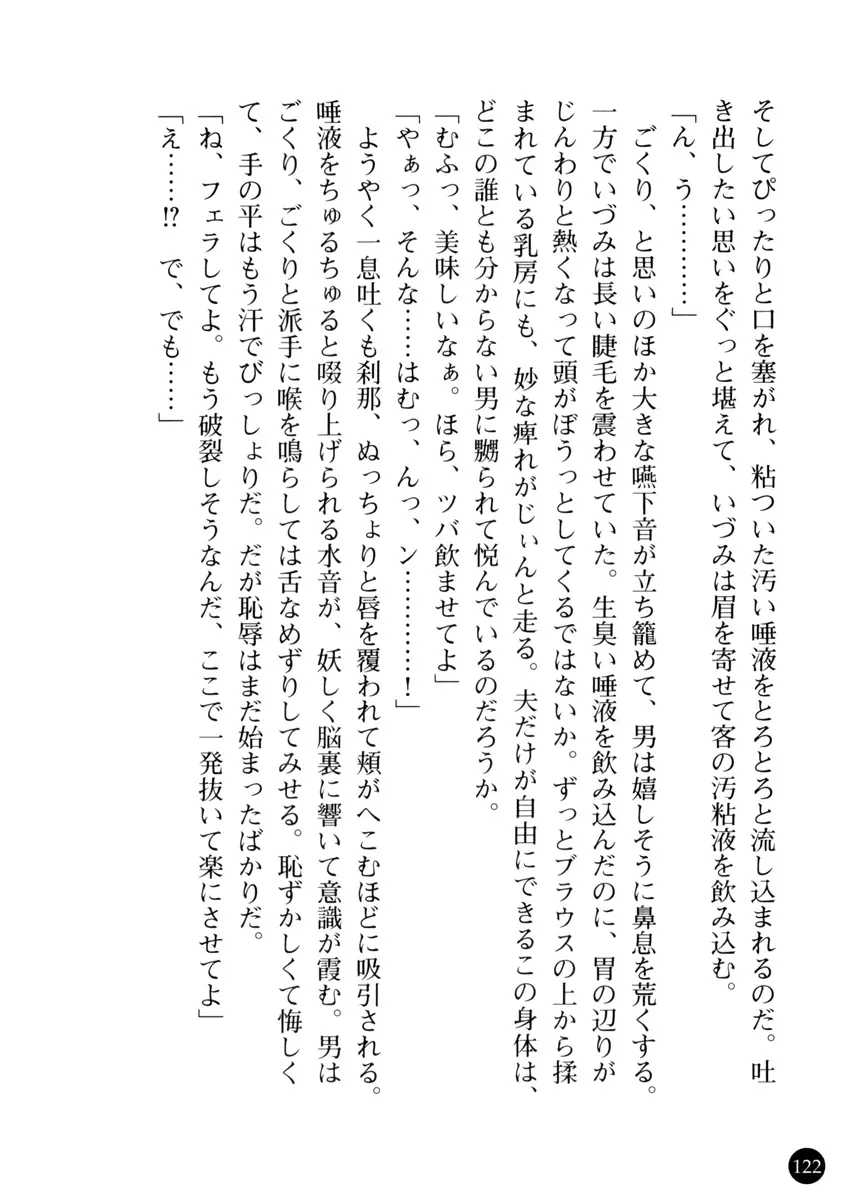 そしてぴったりと口を塞がれ、粘ついた汚い唾液をとろとろと流し込まれるのだ。吐
き出したい思いをぐっと堪えて、いづみは眉を寄せて客の汚粘液を飲み込む。
「ん、う…………」
ごくり、と思いのほか大きな嚥下音が立ち籠めて、男は嬉しそうに鼻息を荒くする。
一方でいづみは長い睫毛を震わせていた。生臭い唾液を飲み込んだのに、胃の辺りが
じんわりと熱くなって頭がぼうっとしてくるではないか。ずっとブラウスの上から揉
まれている乳房にも、妙な痺れがじぃんと走る。夫だけが自由にできるこの身体は、
どこの誰とも分からない男に嬲られて悦んでいるのだろうか。
「むふっ、美味しいなぁ。ほら、ツバ飲ませてよ」
「やぁっ、そんな……はむっ、んっ、ン…………！」
ようやく一息吐くも刹那、ぬっちょりと唇を覆われて頬がへこむほどに吸引される。
唾液をちゅるちゅると啜り上げられる水音が、妖しく脳裏に響いて意識が霞む。男は
ごくり、ごくりと派手に喉を鳴らしては舌なめずりしてみせる。恥ずかしくて悔しく
て、手の平はもう汗でびっしょりだ。だが恥辱はまだ始まったばかりだ。
「ね、フェラしてよ。もう破裂しそうなんだ、ここで一発抜いて楽にさせてよ」
「え……!?　で、でも……」
122